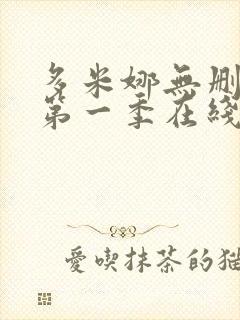 多米娜無刪
第一季在綫
愛喫抹茶的猫